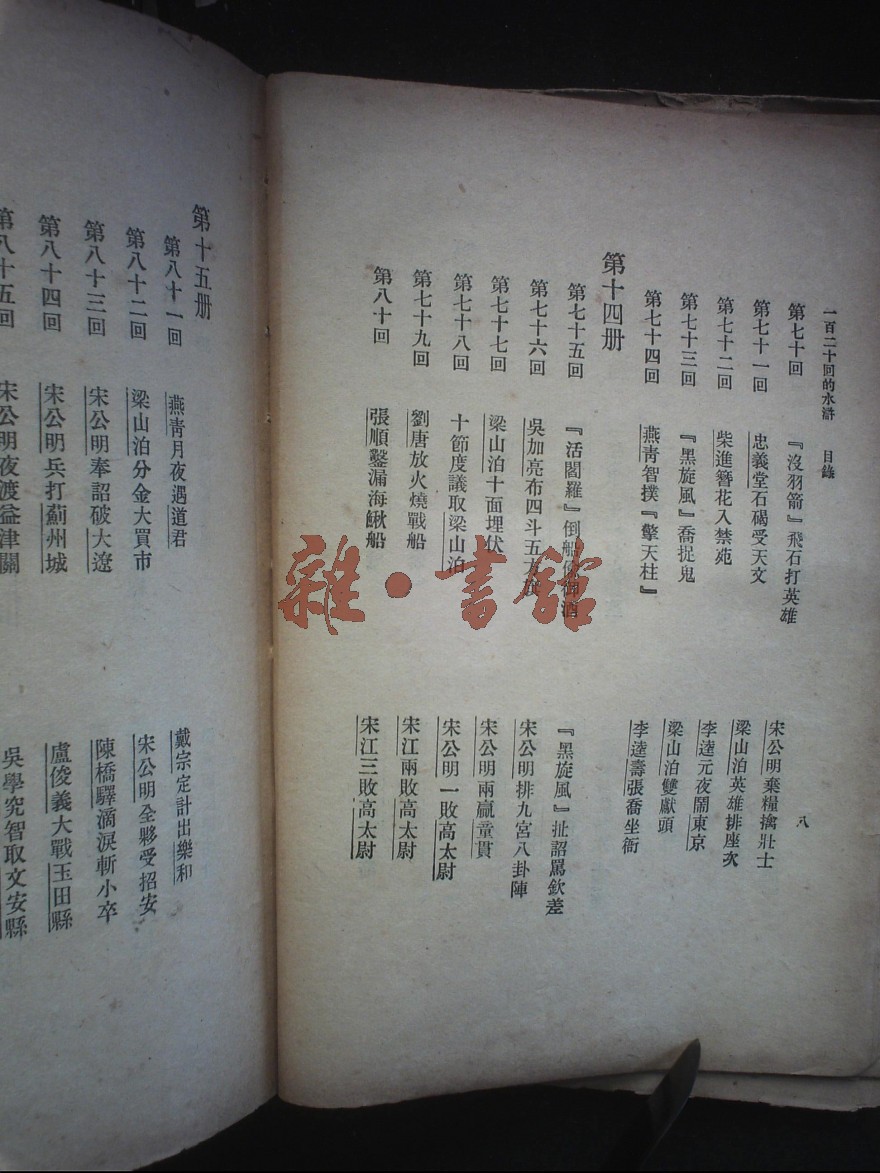 一百二十回的水滸 目錄 八
第七十回 『沒羽箭』飛石打英雄 宋公明棄糧擒壯士
第七十一回 忠義堂石碣受天文 梁山泊英雄排座次
第七十二回 柴進簪花入禁苑 李逵元夜鬧東京
第七十三回 『黑旋風』喬捉鬼 梁山泊雙獻頭
第七十四回 燕青智撲『擎天柱』 李逵壽張喬坐衙
第十四册
第七十五回 『活閻羅』倒船偷御酒 『黑旋風』扯詔罵欽差
第七十六回 吳加亮布四斗五方旗 宋公明排九宮八卦陣
第七十七回 梁山泊十面埋伏 宋公明兩贏童貫
第七十八回 十節度議取梁山泊 宋公明一敗高太尉
第七十九回 劉唐放火燒戰船 宋江兩敗高太尉
第八十回 張順鑿漏海鰍船 宋江三敗高太尉
第十五册
第八十一回 燕青月夜遇道君 戴宗定計出樂和
第八十二回 梁山泊分金大買市 宋公明全夥受招安
第八十三回 宋公明奉詔破大遼 陳橋驛滴淚斬小卒
第八十四回 宋公明兵打薊州城 盧俊義大戰玉田縣
第八十五回 宋公明夜渡益津關 吳學究智取文安縣
雜·書館